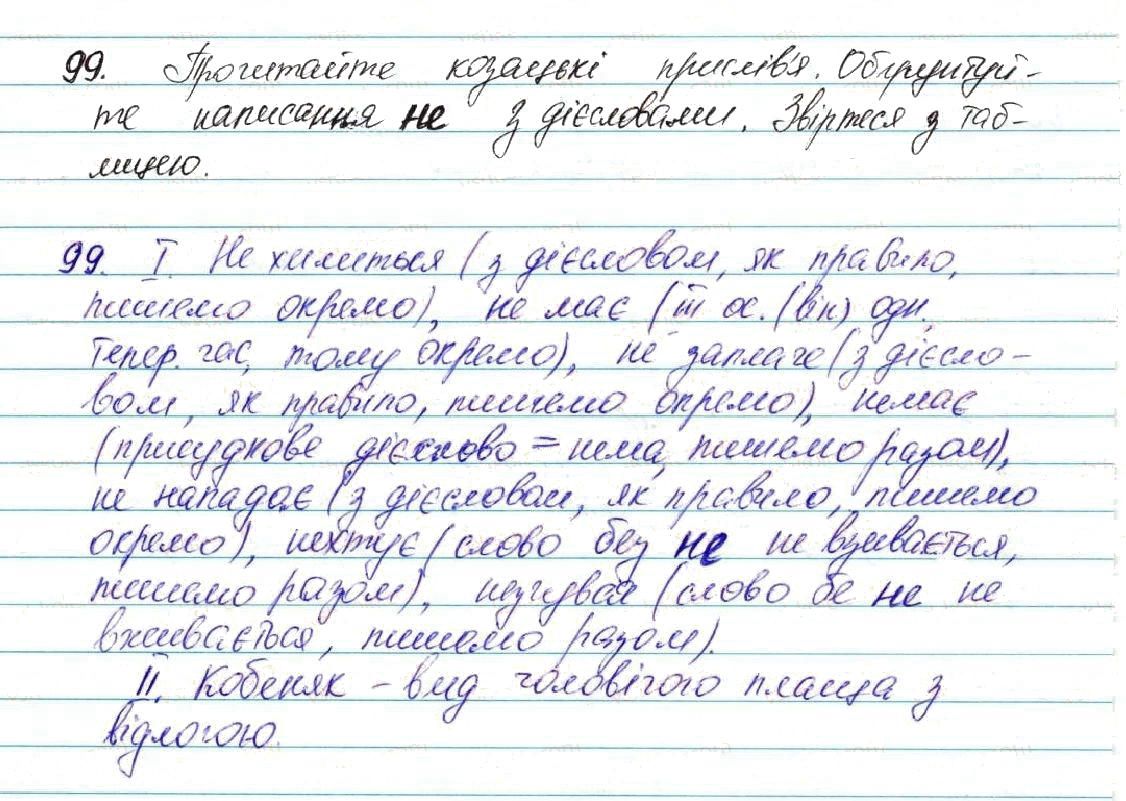 99. Прочитайте козацькі прислів'я. Обґрунтуй-
те написання не з дієсловами. Звіртеся з таб-
лицею.
99. І. Не хилиться (з дієсловом, як правило,
пишемо окремо), не має (ІІІ ос. (він) одн.
Тепер. час, тому окремо), не заплаче (з дієсло-
вом, як правило, пишемо окремо), немає
(присудкове дієслово = нема, пишемо разом),
не нападає (з дієсловом, як правило, пишемо
окремо), нехтує (слово без не не вживається,
пишемо разом), (слово бе не не
вживається, пишемо разом).
ІІ. Кобеняк – вид чоловічого плаща з
відлогою.